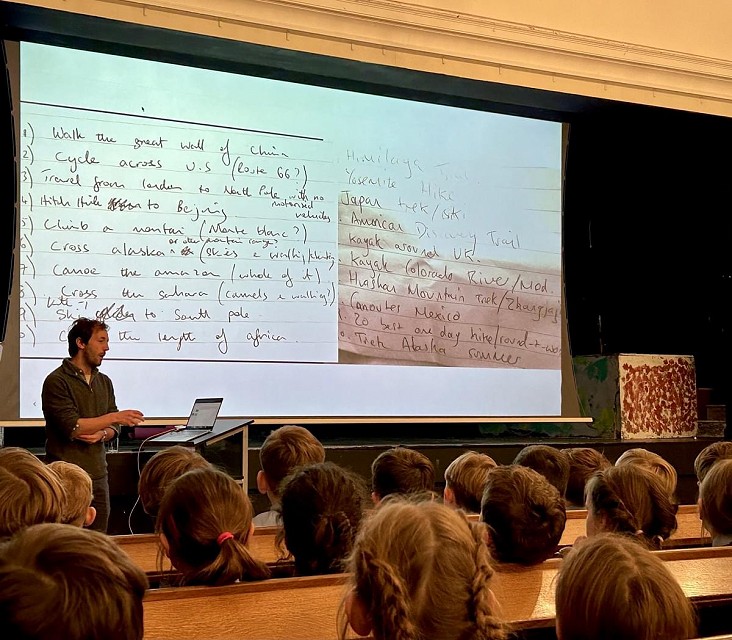 1) Walk the great wall of China
2) Cycle across U.S (Route 66?)
3) Travel from london to North Pole with no motorised vehicles
4) Hitch Hike to Beijing
5) Climb a montain (Monte blanc?)
or other montain range?
6) Cross alaska (skies & walking/
7) Canoe the amazon (whole of it)
8) Cross the sahara (camels & walking?)
9) to South pole
the length of africa
Himilaya
Yosemite Hike
Japan trek/ski
American Discovery Trail
Kayak around UK.
Kayak Colorado River/
Huashan Mountain Trek/
Mexico
20 best one day hike/round-t-
Trek Alaska